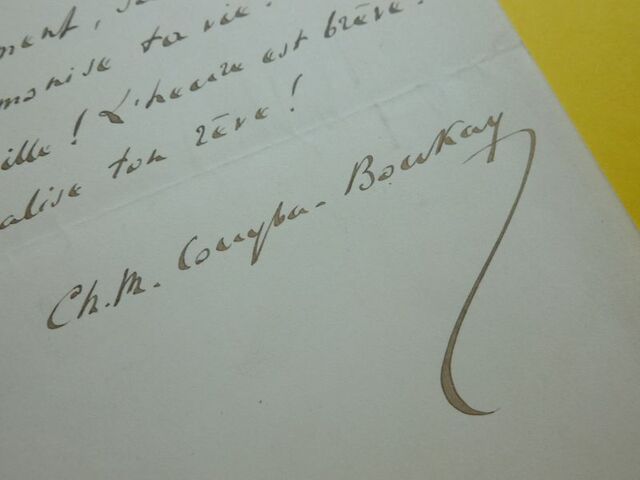 ment,
monise ta vie!
ille! L'heure est brève!
alise ton rêve!
Ch. M. Couyba-Boukay